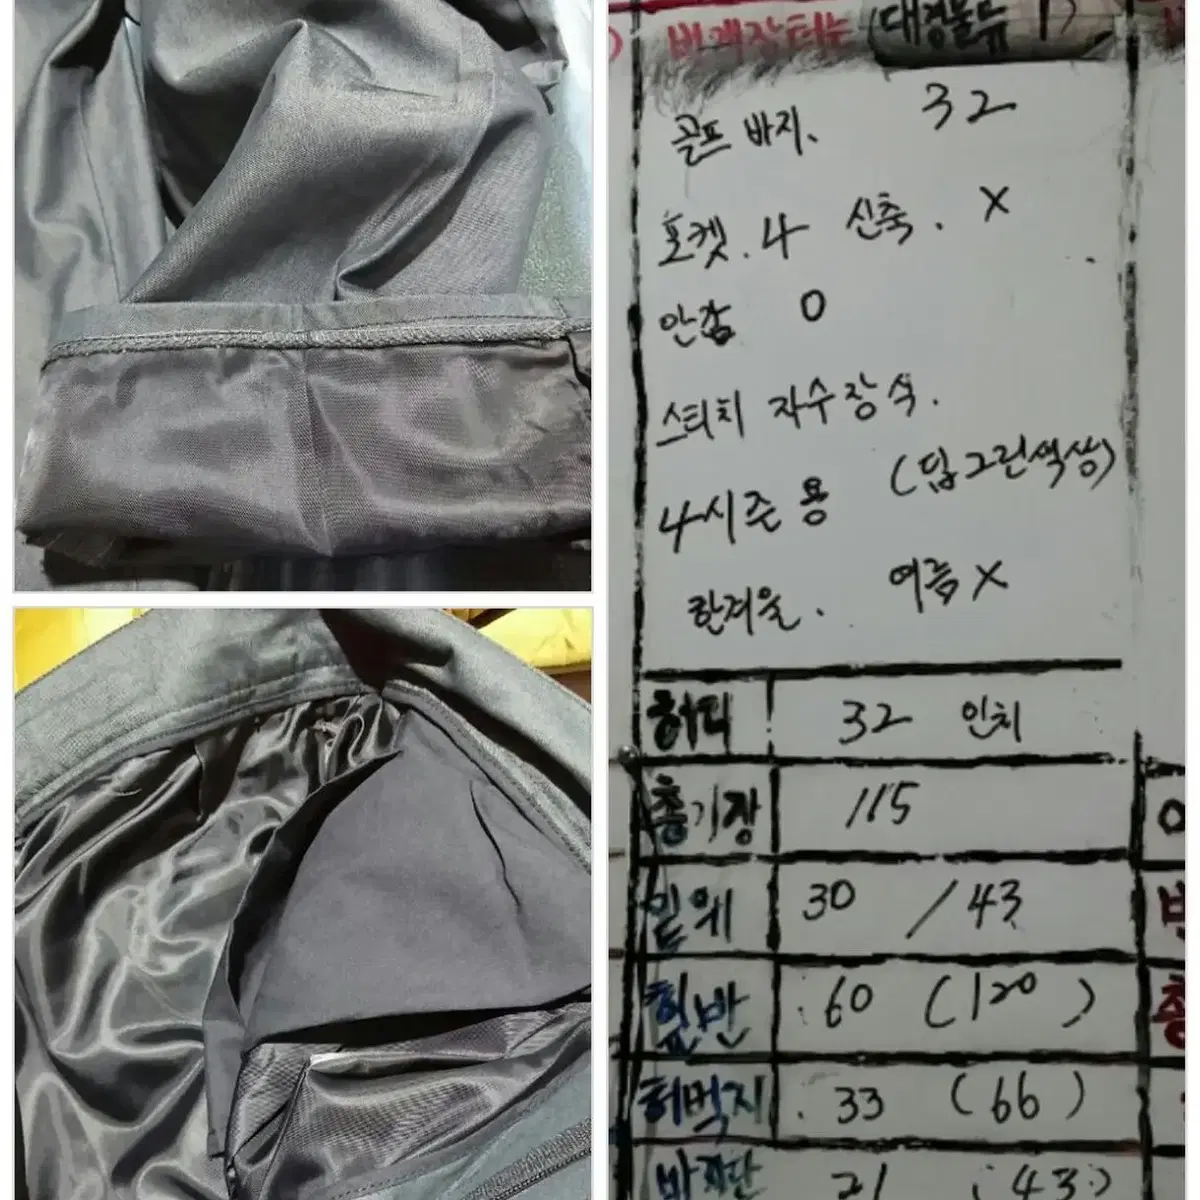 번개장터는 (대경물류 1)
골프 바지. 32
포켓. 4 신축. X
안감 O
스티치 자수장식.
4시즌용 (딥그린색상)
한겨울. 여름X
허리 32 인치
총기장 115
밑위 30 / 43
힙반 60 (120)
허벅지 33 (66)
바지단 21 (43)